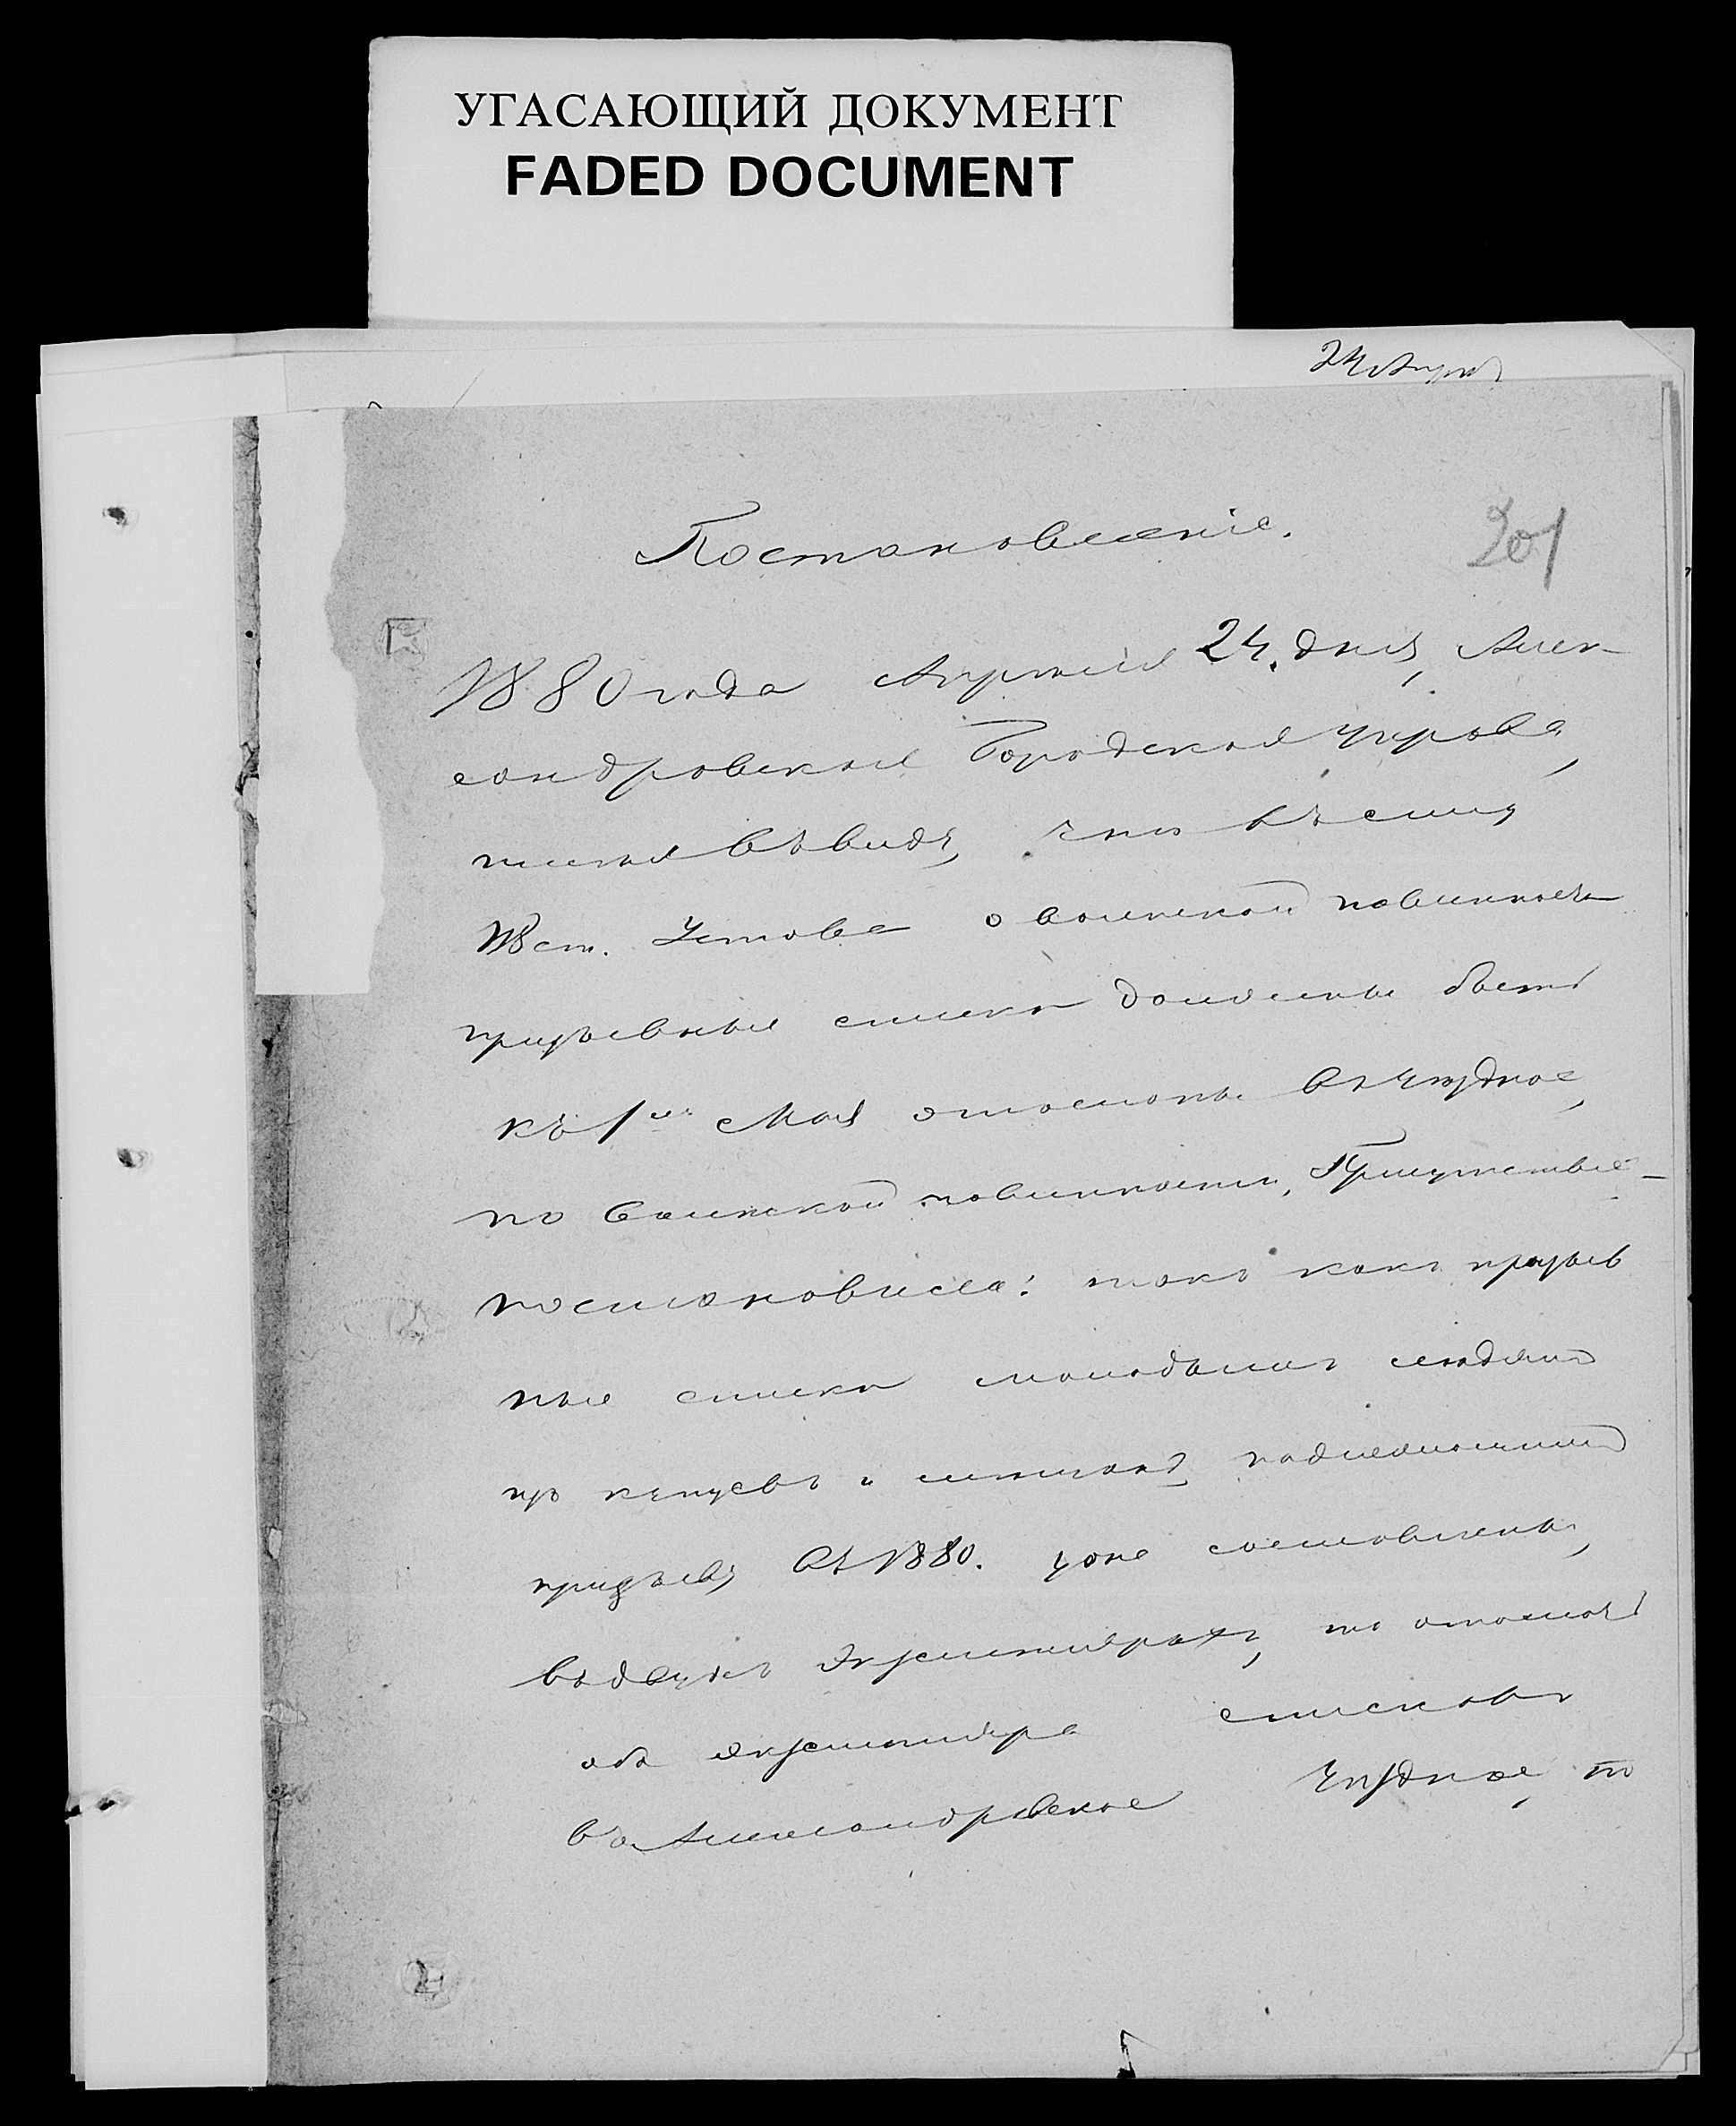 УГАСАЮЩИЙ ДОКУМЕНТ
FADED DOCUMENT
24 Апрѣл
Постановленіе.
201
1880 года Апрѣля 24. дня, Алек-
сандровская Городская Управа,
имѣя въ виду, что въ силу
ст. Устава о воинской повинности
призывные списки должны быть
къ 1му Мая отосланы въ Уѣздное,
по воинской повинности, Присутствіе -
постановила: такъ какъ призыв
ные списки молодымъ людямъ
изъ купцевъ и мѣщанъ, подлежащимъ
призыву въ 1880. уже составлены,
въ двухъ экземплярахъ, то отослать
оба экземпляра списковъ
въ Александровское Уѣздное, по